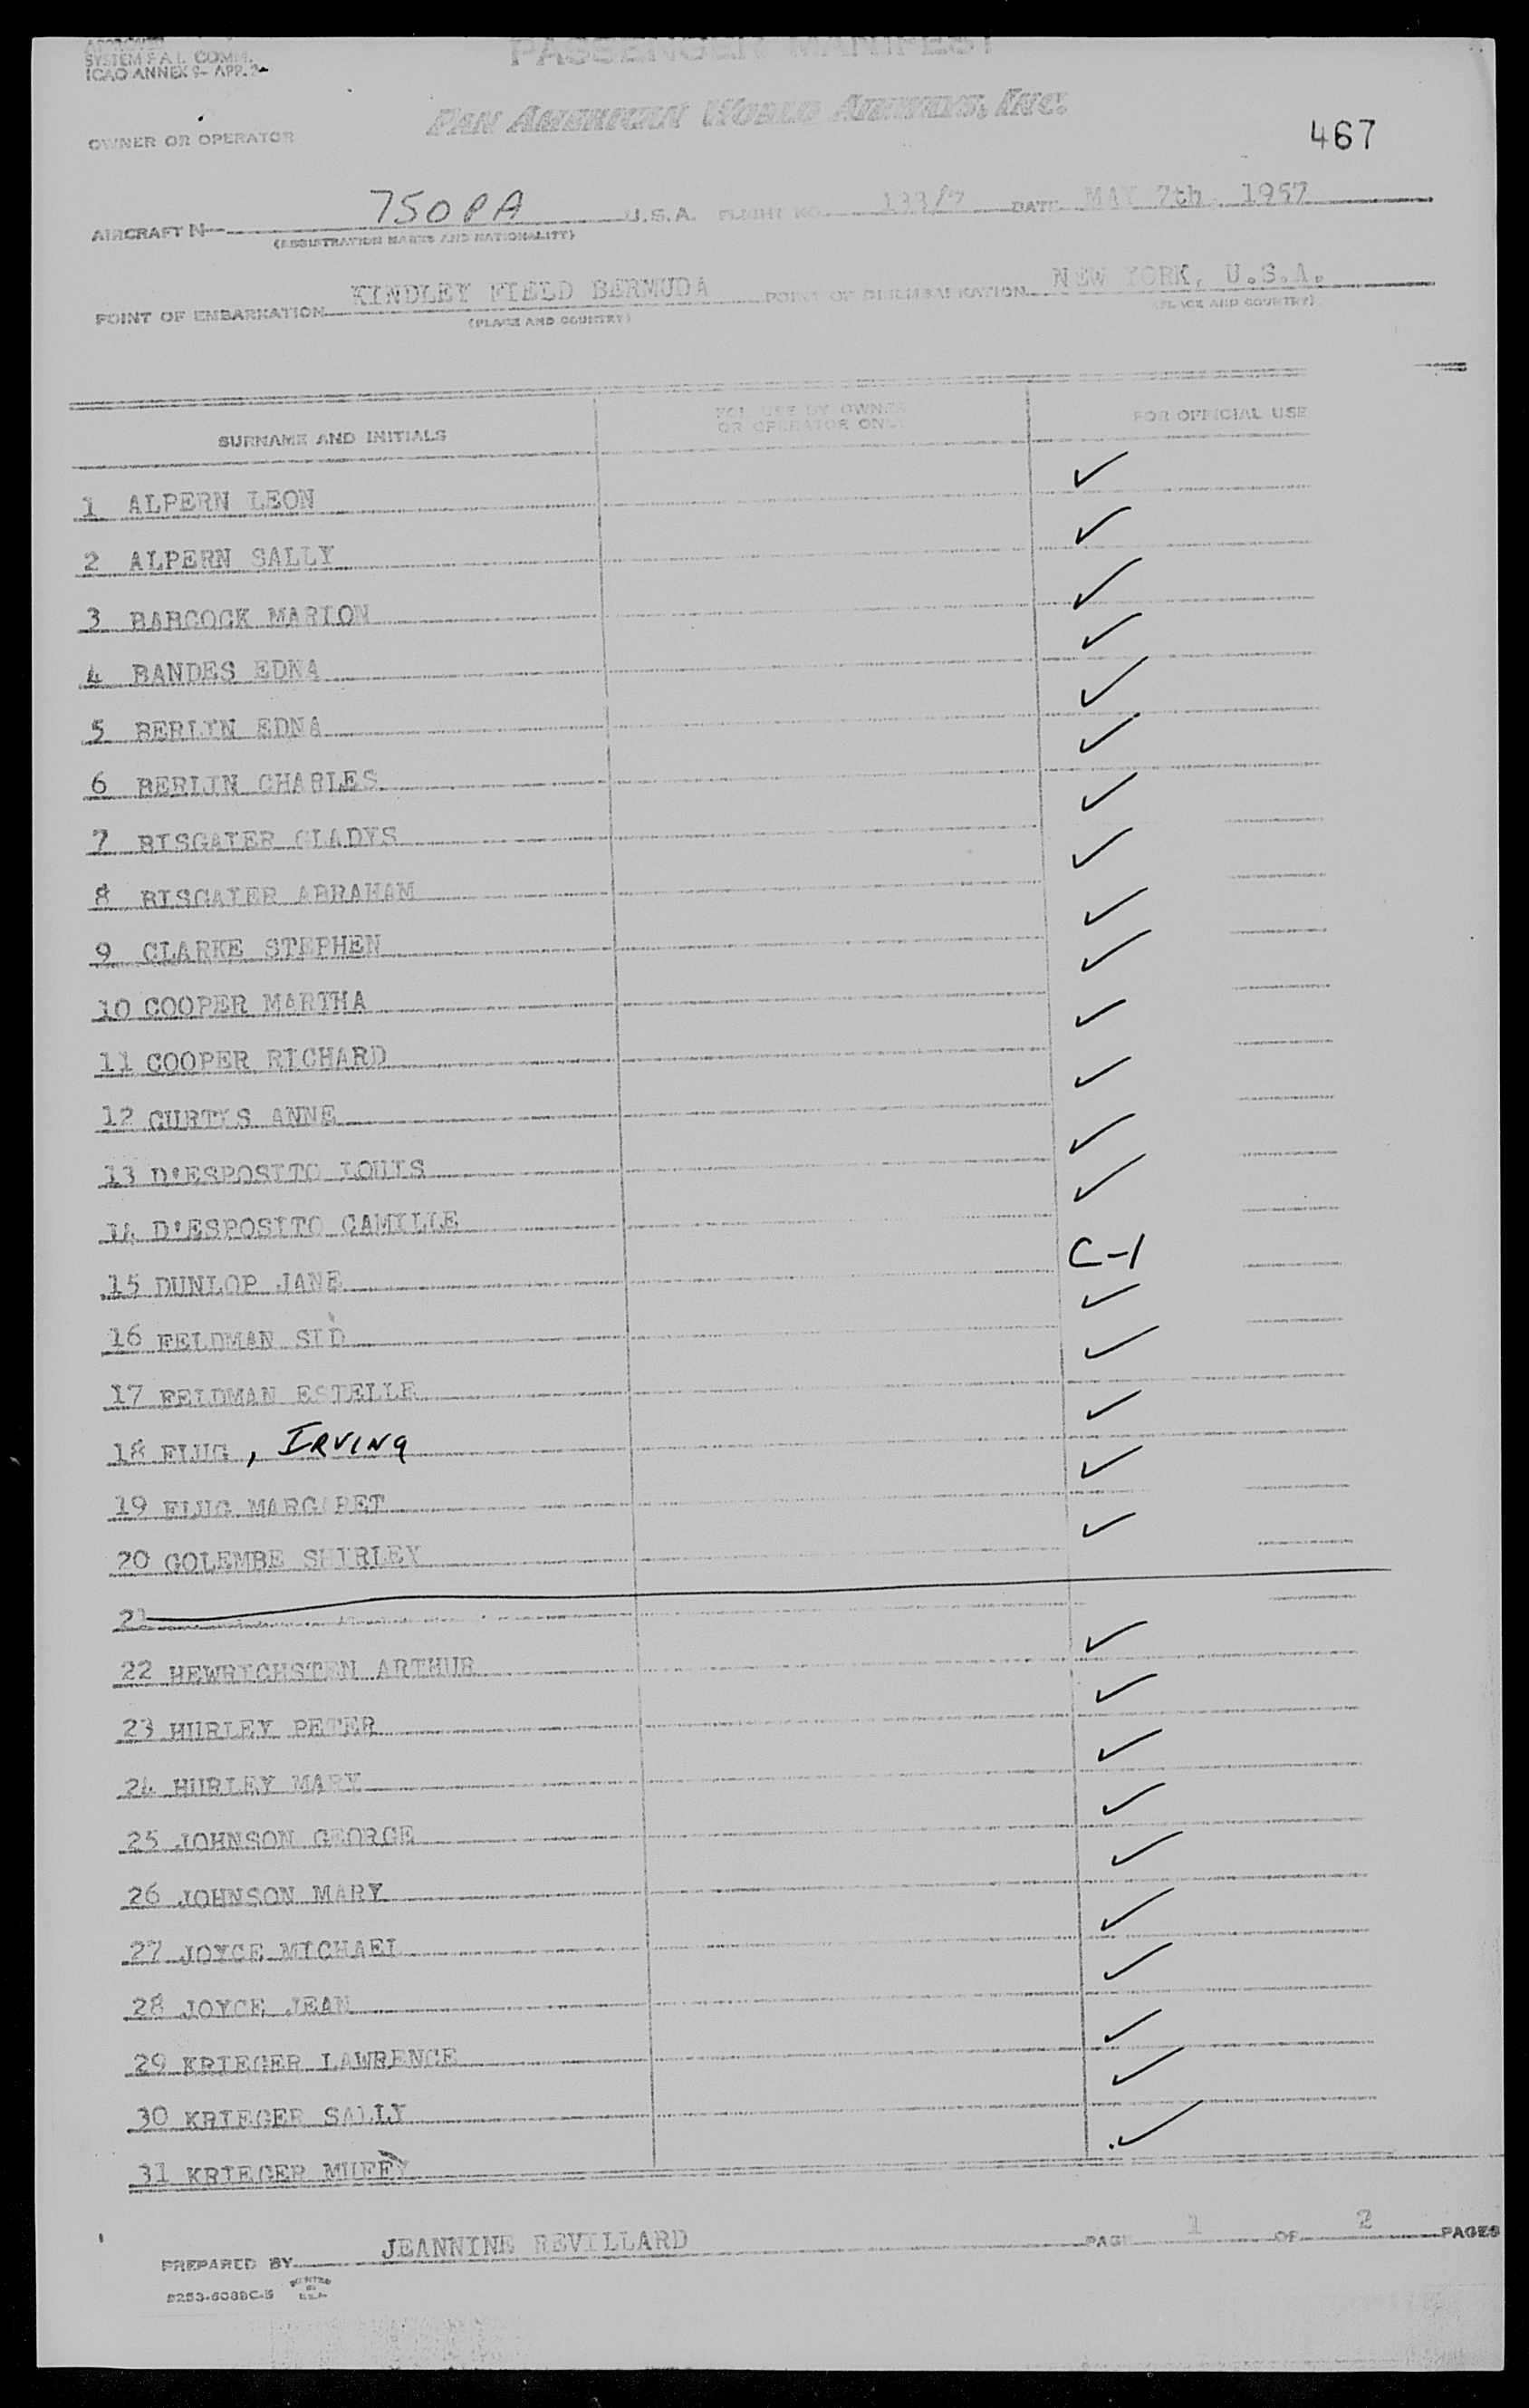 APPROVED
SYSTEM F.A.L. COMM.
ICAO ANNEX 9- APP. 2
PASSENGER MANIFEST
PAN AMERICAN WORLD AIRWAYS, INC.
OWNER OR OPERATOR
467
AIRCRAFT N 750PA U.S.A. FLIGHT NO. 133/7 DATE MAY 7th, 1957
(REGISTRATION MARKS AND NATIONALITY)
POINT OF EMBARKATION KINDLEY FIELD BERMUDA POINT OF DISEMBARKATION NEW YORK, U.S.A.
(PLACE AND COUNTRY) (PLACE AND COUNTRY)
SURNAME AND INITIALS FOR USE BY OWNER OR OPERATOR ONLY FOR OFFICIAL USE
1 ALPERN LEON ✓
2 ALPERN SALLY ✓
3 BABCOCK MARION ✓
4 BANDES EDNA ✓
5 BERLIN EDNA ✓
6 BERLIN CHARLES ✓
7 BISGAIER GLADYS ✓
8 BISGAIER ABRAHAM ✓
9 CLARKE STEPHEN ✓
10 COOPER MARTHA ✓
11 COOPER RICHARD ✓
12 CURTIS ANNE ✓
13 D'ESPOSITO LOUIS ✓
14 D'ESPOSITO CAMILLE ✓
15 DUNLOP JANE C-1
16 FELDMAN SID ✓
17 FELDMAN ESTELLE ✓
18 FLUG, IRVING ✓
19 FLUG MARGARET ✓
20 GOLEMBE SHIRLEY ✓
21
22 HEWRICHSTEN ARTHUR ✓
23 HURLEY PETER ✓
24 HURLEY MARY ✓
25 JOHNSON GEORGE ✓
26 JOHNSON MARY ✓
27 JOYCE MICHAEL ✓
28 JOYCE JEAN ✓
29 KRIEGER LAWRENCE ✓
30 KRIEGER SALLY ✓
31 KRIEGER MUFFY ✓
PREPARED BY JEANNINE REVILLARD PAGE 1 OF 2 PAGES
PRINTED IN U.S.A.